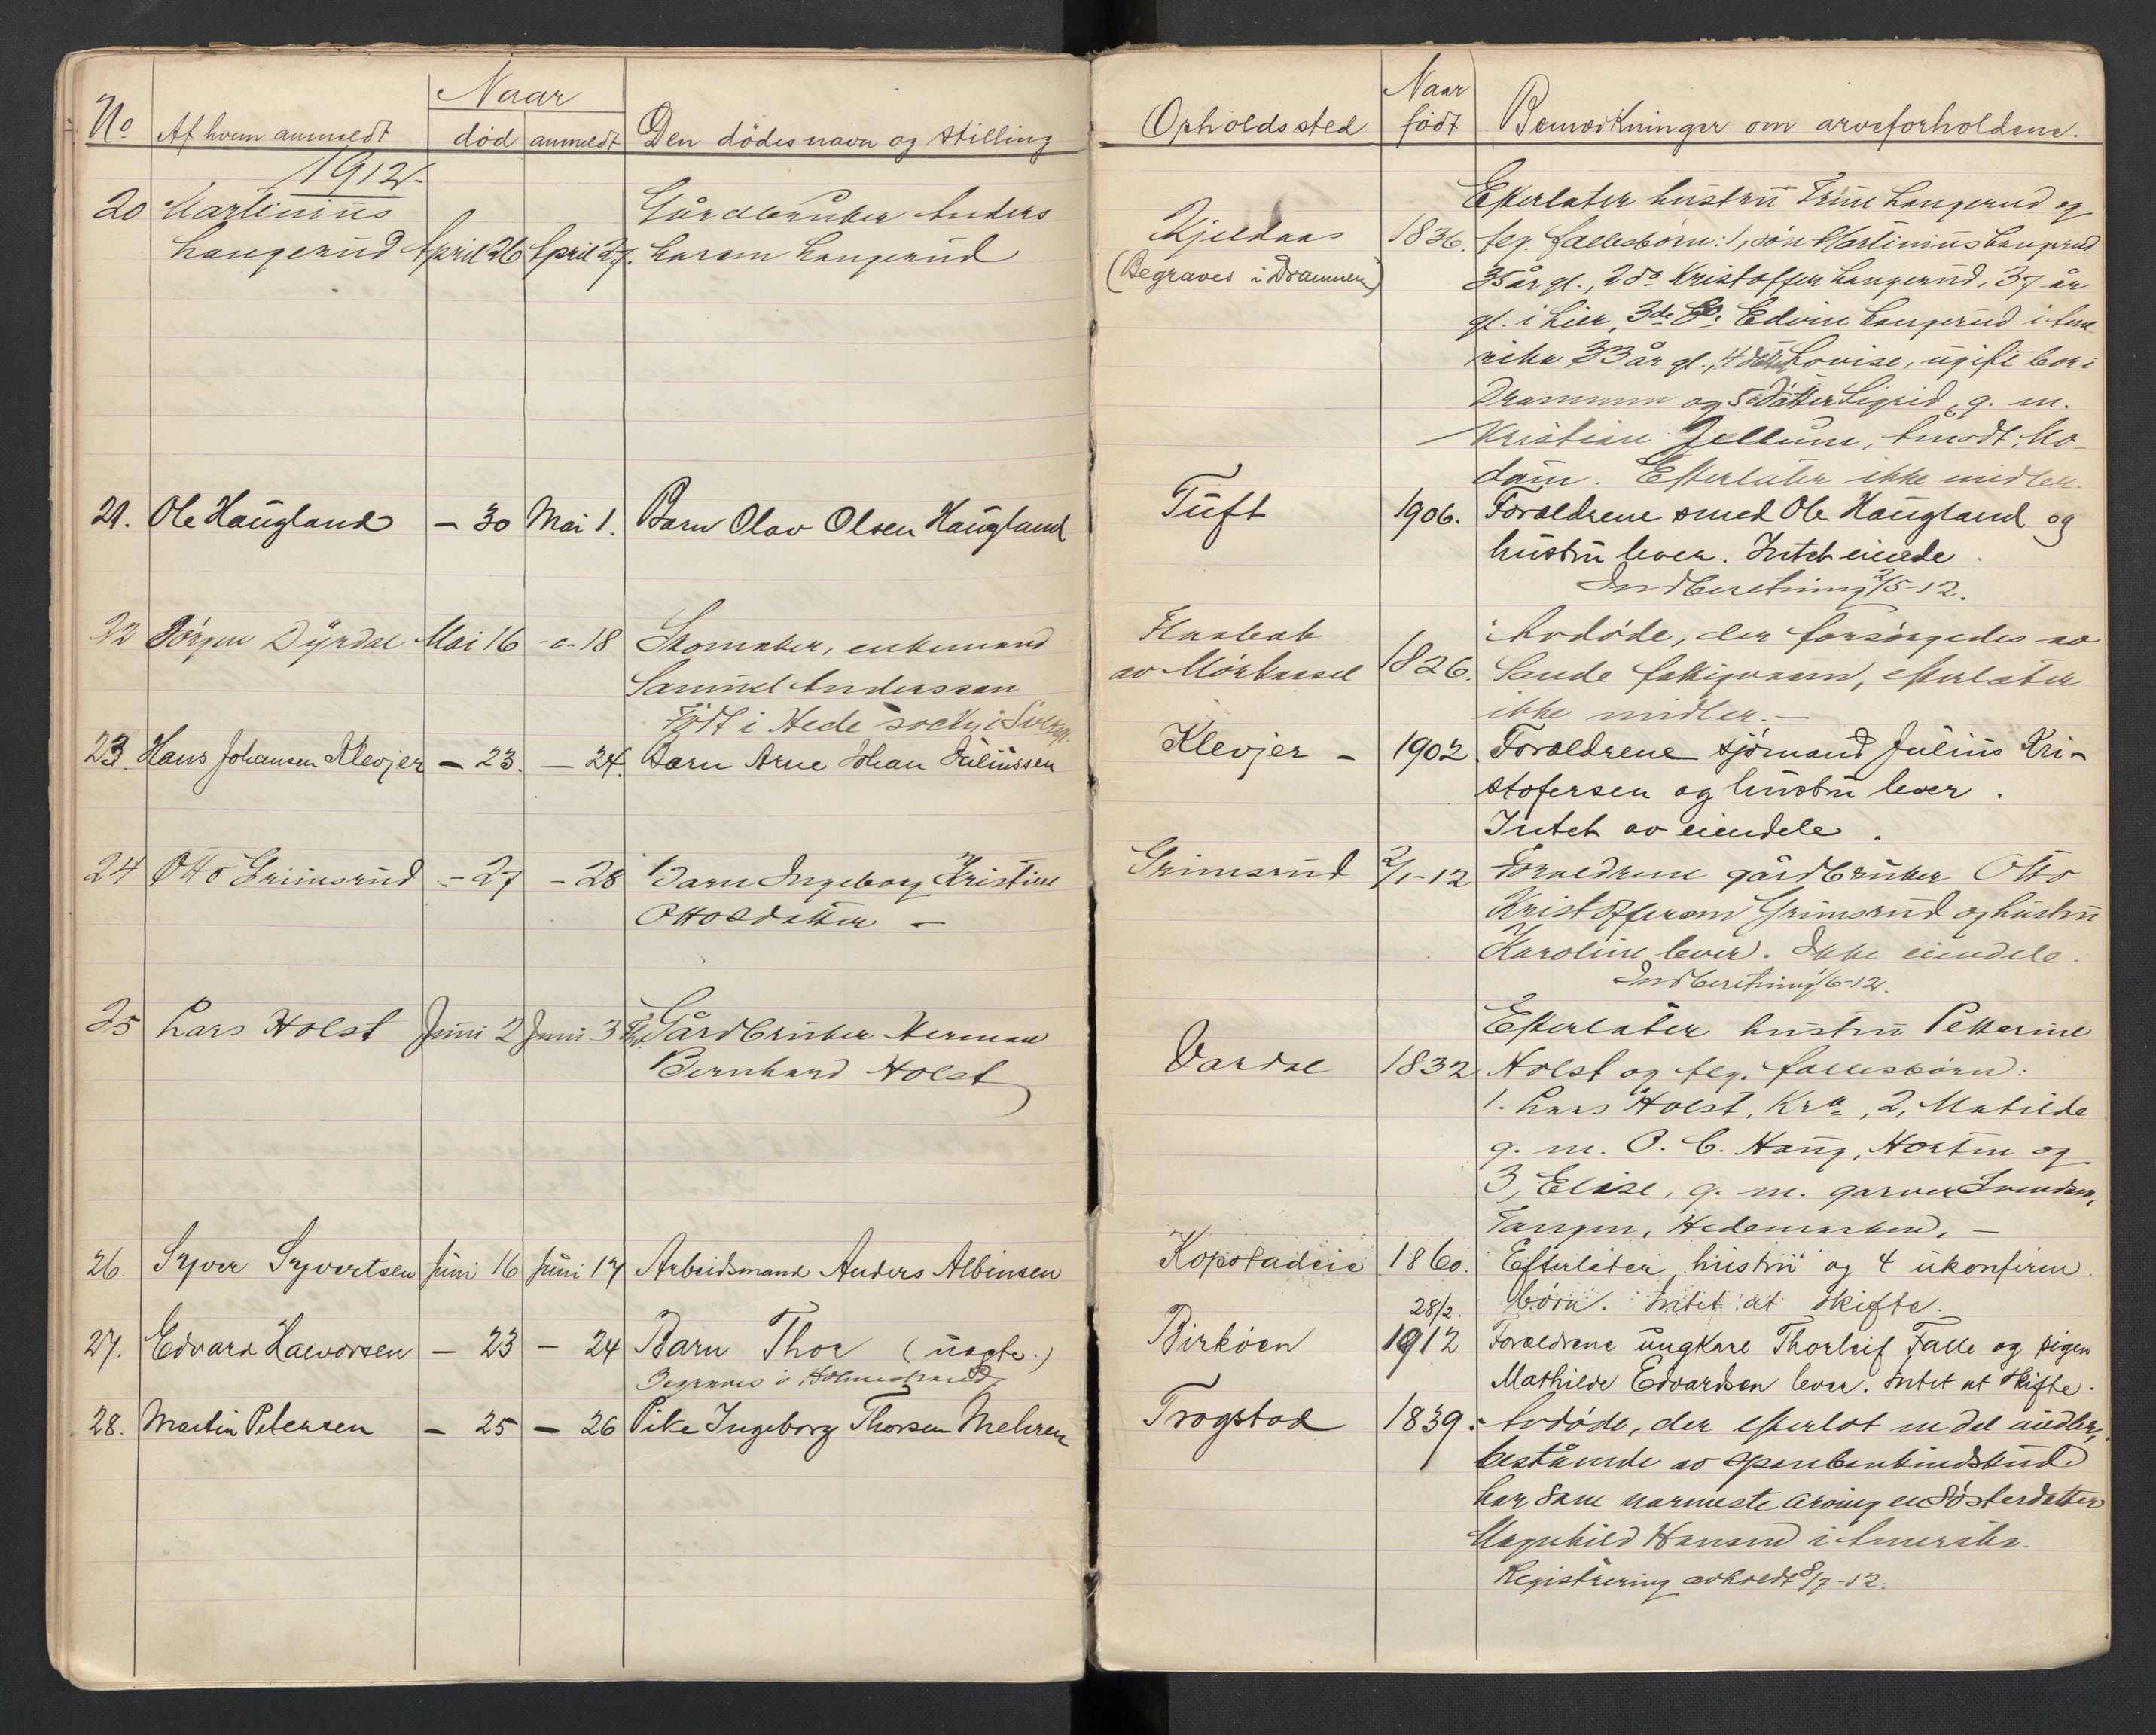 No
Af hvem anmeldt
Naar
død
anmeldt
Den dødes navn og stilling
1912.
20 Martinius
Langerud April 26 April 27.
Gårdbruker Anders
Larsen Langerud
21. Ole Haugland — 30 Mai 1. Barn Olav Olsen Haugland
22 Jørgen Dyrdal Mai 16 -o- 18 Skomaker, enkemand
Samuel Anderssen
Født i Hede i Sverig.
23. Hans Johansen Klevjer — 23. — 24. Barn Arne Johan Juliussen
24 Otto Grimsrud — 27 — 28 Barn Ingeborg Kristine
Ottosdatter —
25 Lars Holst Juni 2 Juni 3 Gårdbruker Herman
Bernhard Holst
26. Syver Syvertsen Juni 16 Juni 17 Arbeidsmand Anders Albinsen
27. Edvard Halvorsen — 23 — 24 Barn Thor (uegte.)
Begraves i Holmestrand
28. Martin Petersen — 25 — 26 Pike Ingeborg Thorsen Mehren
Opholdssted
Naar
født
Bemerkninger om arveforholdene.
Efterlater hustru Trine Langerud og
Kjeldaas 1836. følg. fællesbørn: 1, søn Martinius Langerud
(Begraves i Drammen) 35 år gl., 2 do Kristoffer Langerud, 37 år
gl. i Lier, 3de do. Edvin Langerud i Ame
rika 33 år gl., 4 datter Lovise, ugift bor i
Drammen og 5 datter Sigrid, g. m.
Kristian Jellum, Åmodt, Mo
dum. Efterlater ikke midler.
Tuft 1906. Forældrene smed Ole Haugland og
hustru lever. Intet eiende.
Indberetning 2/5-12.
av Mørkassel 1826. Avdøde, der forsørgedes av
Sande fattigvæsen, efterlater
ikke midler. —
Klevjer — 1902 Forældrene sjömand Julius Kri-
stofersen og hustru lever.
Intet av eiendele.
Grimsrud 2/1-12 Forældrene gårdbruker Otto
Kristoffersen Grimsrud og hustru
Karoline lever. Ikke eiendele.
Indberetning 1/6-12.
Efterlater hustru Petterine
Vardal 1832 Holst og følg. fællesbørn:
1. Lars Holst, Kra, 2, Matilde
g. m. O. C. Haug, Horten og
3, Elise, g. m. garver Svendsen,
Tangen, Hedemarken. —
Kopstadeie 1860. Efterlater hustru og 4 ukonfirm.
børn. Intet at skifte.
28/2.
Birkøen 1912 Forældrene ungkarl Thorleif Falle og pigen
Mathilde Edvardsen lever. Intet at skifte.
Trogstad 1839. Avdøde, der efterlot en del midler,
bestående av sparebankindskud
har som nærmeste arving en søsterdatter
Magnhild Hansen i Amerika.
Registrering avholdt 8/7-12.